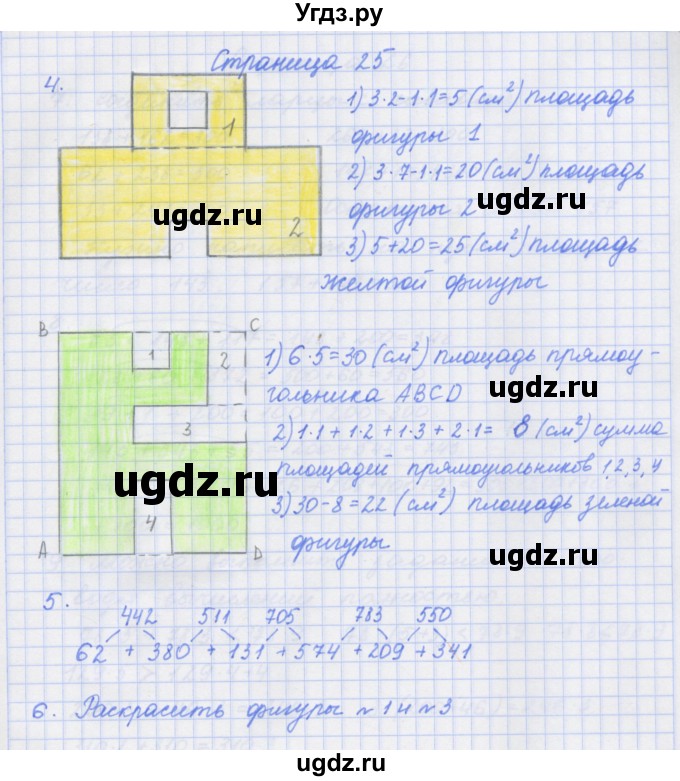 Угдз.ру
Страница 25
4.
1
2
1) 3·2-1·1=5 (см²) площадь
фигуры 1
2) 3·7-1·1=20 (см²) площадь
фигуры 2
3) 5+20=25 (см²) площадь
желтой фигуры
ugdz.ru
ugdz.ru
B C
1 2
3
4
A D
1) 6·5=30 (см²) площадь прямоу-
гольника ABCD
2) 1·1+1·2+1·3+2·1= 8 (см²) сумма
площадей прямоугольников 1,2,3,4
3) 30-8=22 (см²) площадь зеленой
фигуры
ugdz.ru
ugdz.ru
ugdz.ru
5.
442 511 705 783 550
62 + 380 + 131 + 574 + 209 + 341
6. Раскрасить фигуры №1 и №3
ugdz.ru